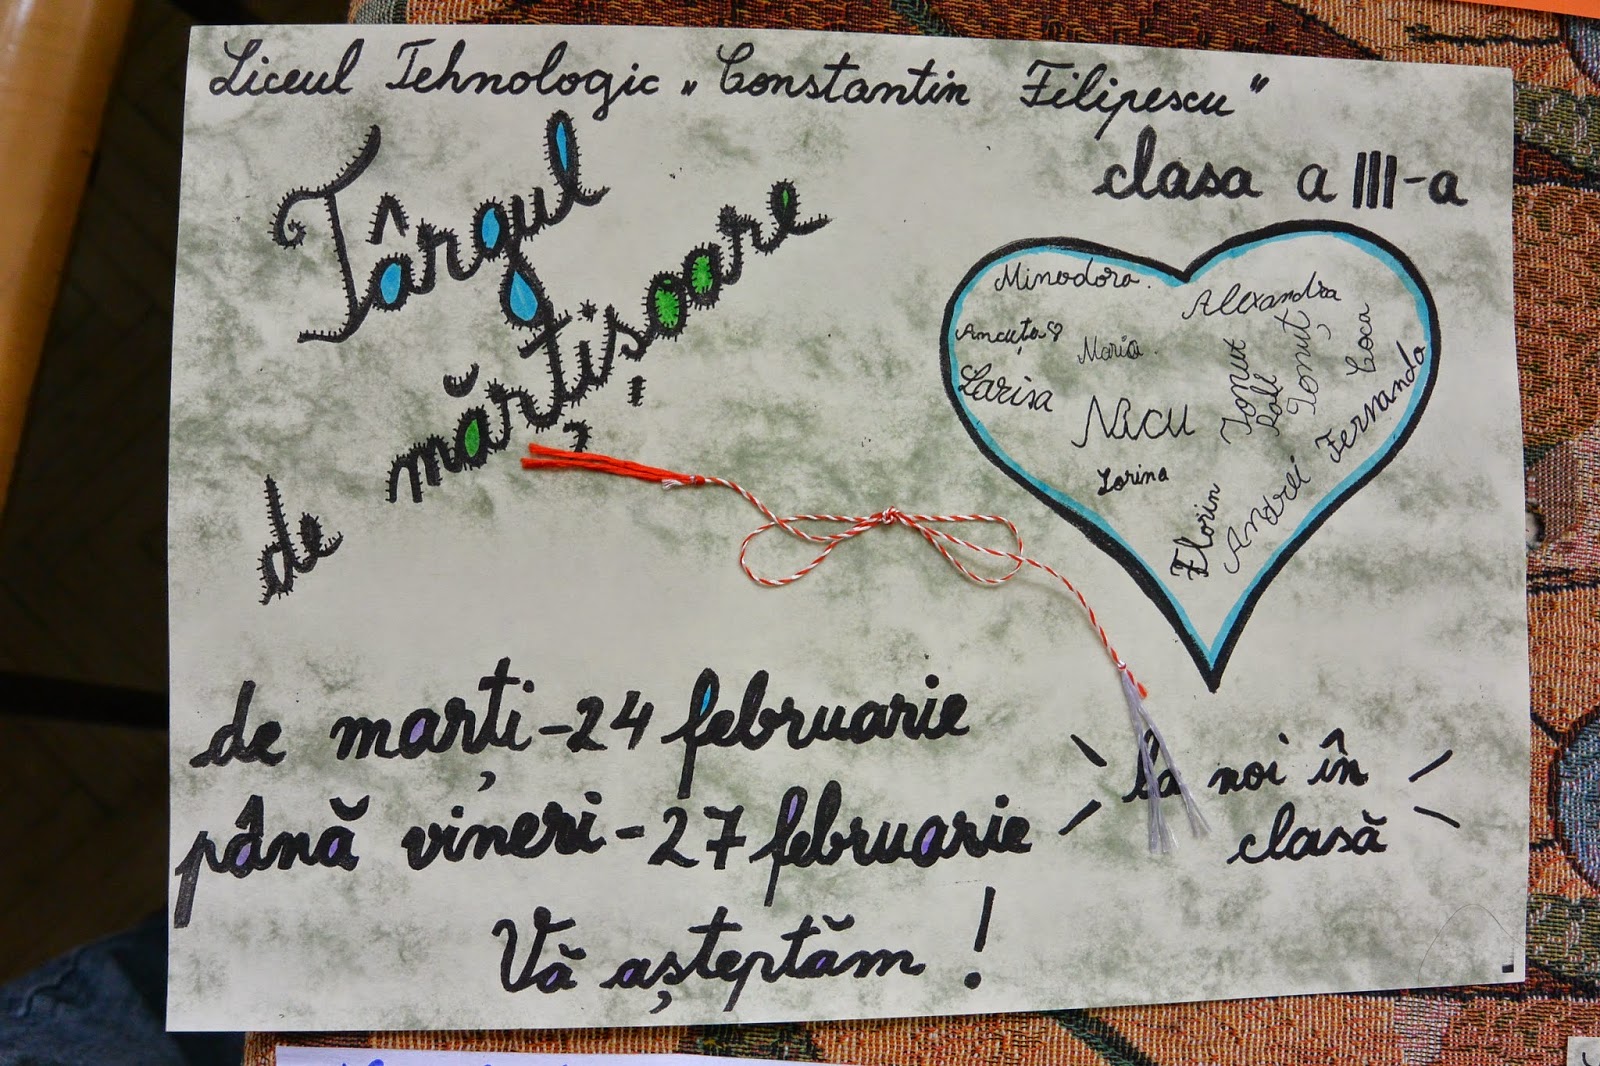 Liceul Tehnologic „Constantin Filipescu"
clasa a III-a
Târgul
de mărțișoare
Minodora.
Alexandra
Ancuța♡
Maria.
Larisa
Nicu
Ionuț
Ionuț
Coca
Fernanda
Lorina
Florin
Andrei
de marți-24 februarie
până vineri-27 februarie
La noi în
clasă
Vă așteptăm!